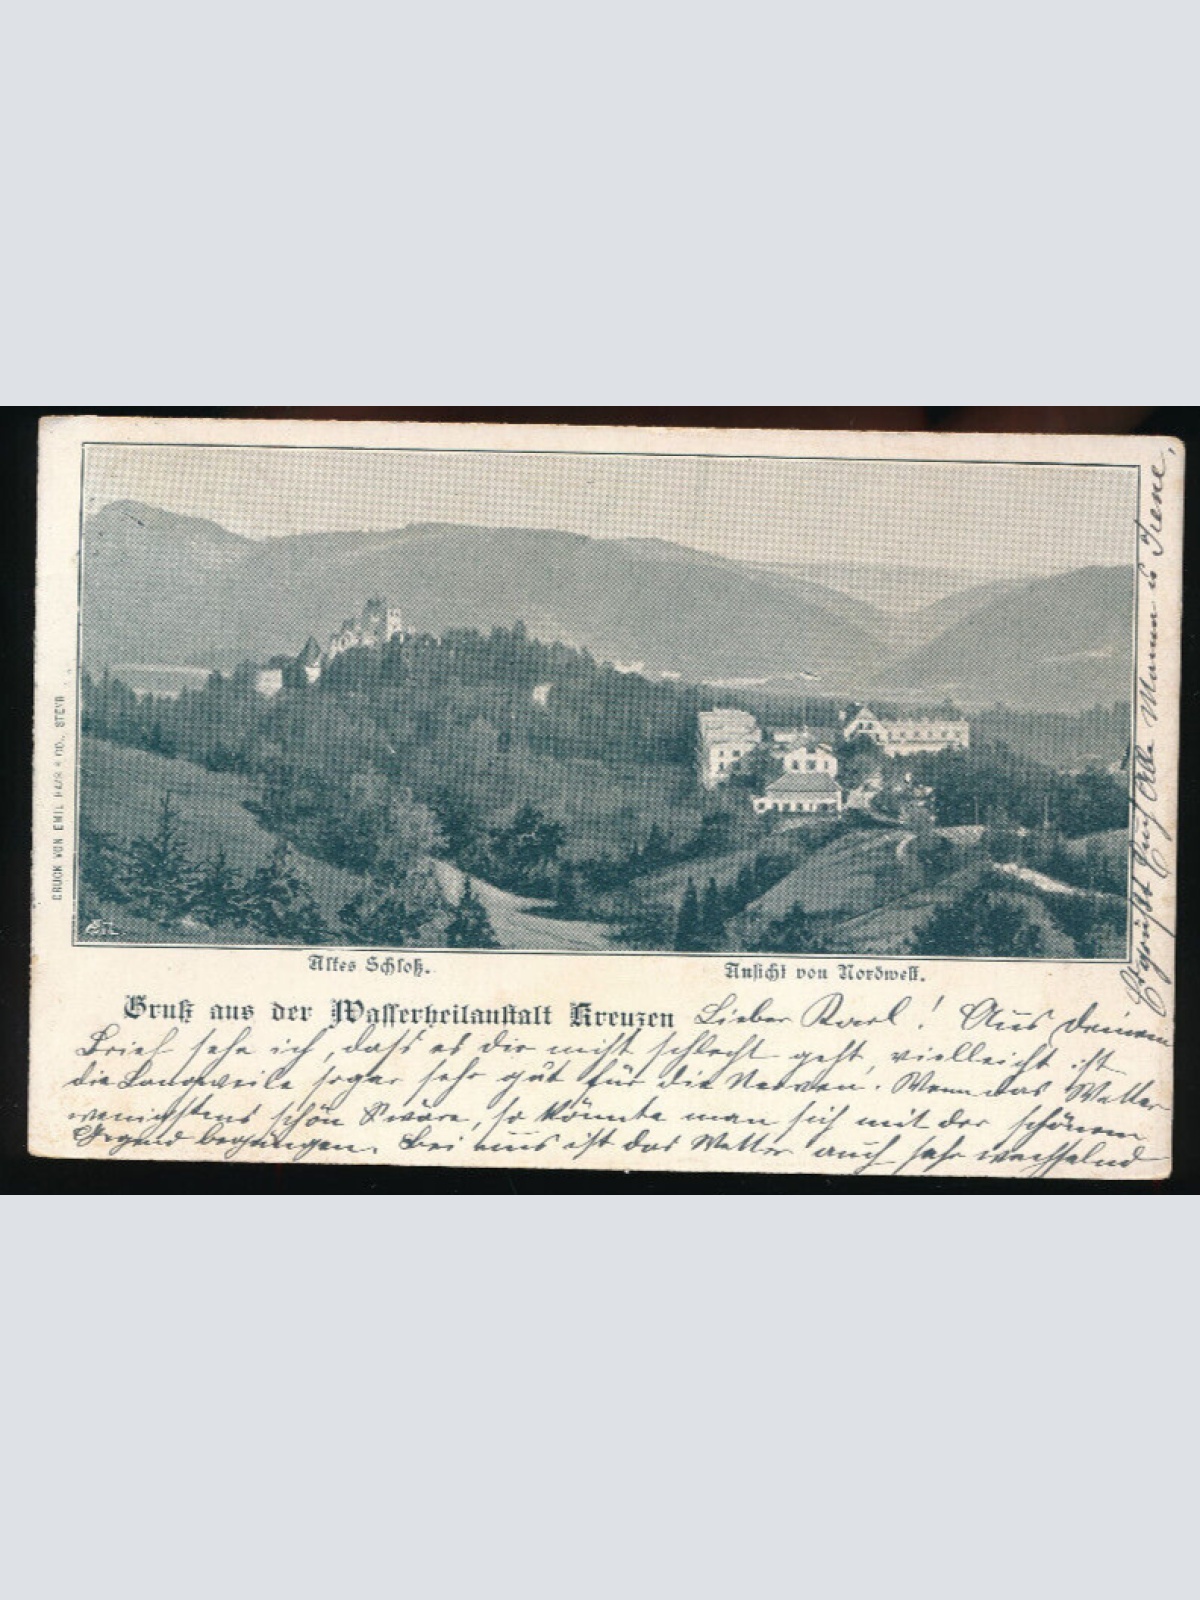 DRUCK VON EMIL HAAS & CO., STEYR
Altes Schloß.
Ansicht von Nordwest.
Gruß aus der Wasserheilanstalt Kreuzen
Lieber Karl! Aus deinem
Brief sehe ich, dass es dir nicht schlecht geht, vielleicht ist
die Langweile sogar sehr gut für die Nerven. Wenn das Wetter
wenigstens schön wäre, so könnte man sich mit der schönen
Gegend begnügen. Bei uns ist das Wetter auch sehr wechselnd
Es grüßt Euch alle Mama u Irene,